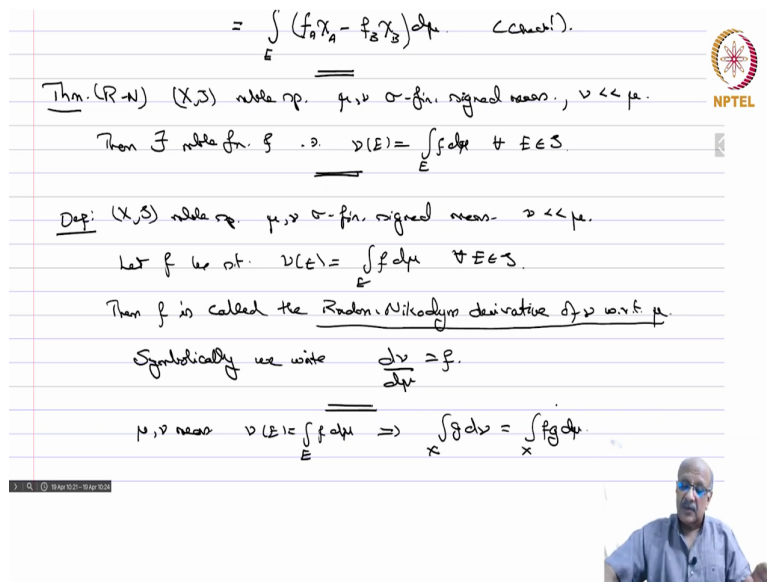 = ∫_E (f_A χ_A − f_B χ_B) dμ. (Check!).
NPTEL
Thm. (R-N) (X, S) mble sp. μ, ν σ-fin. signed meas., ν << μ.
Then ∃ mble fn. f .э. ν(E) = ∫_E f dμ ∀ E ∈ S.
Def: (X, S) mble sp. μ, ν σ-fin. signed meas. ν << μ.
Let f be s.t. ν(E) = ∫_E f dμ ∀ E ∈ S.
Then f is called the Radon-Nikodym derivative of ν w.r.t. μ.
Symbolically we write dν/dμ = f.
μ, ν meas ν(E) = ∫_E f dμ ⇒ ∫_X g dν = ∫_X fg dμ.
19 Apr 10:21 - 19 Apr 10:24